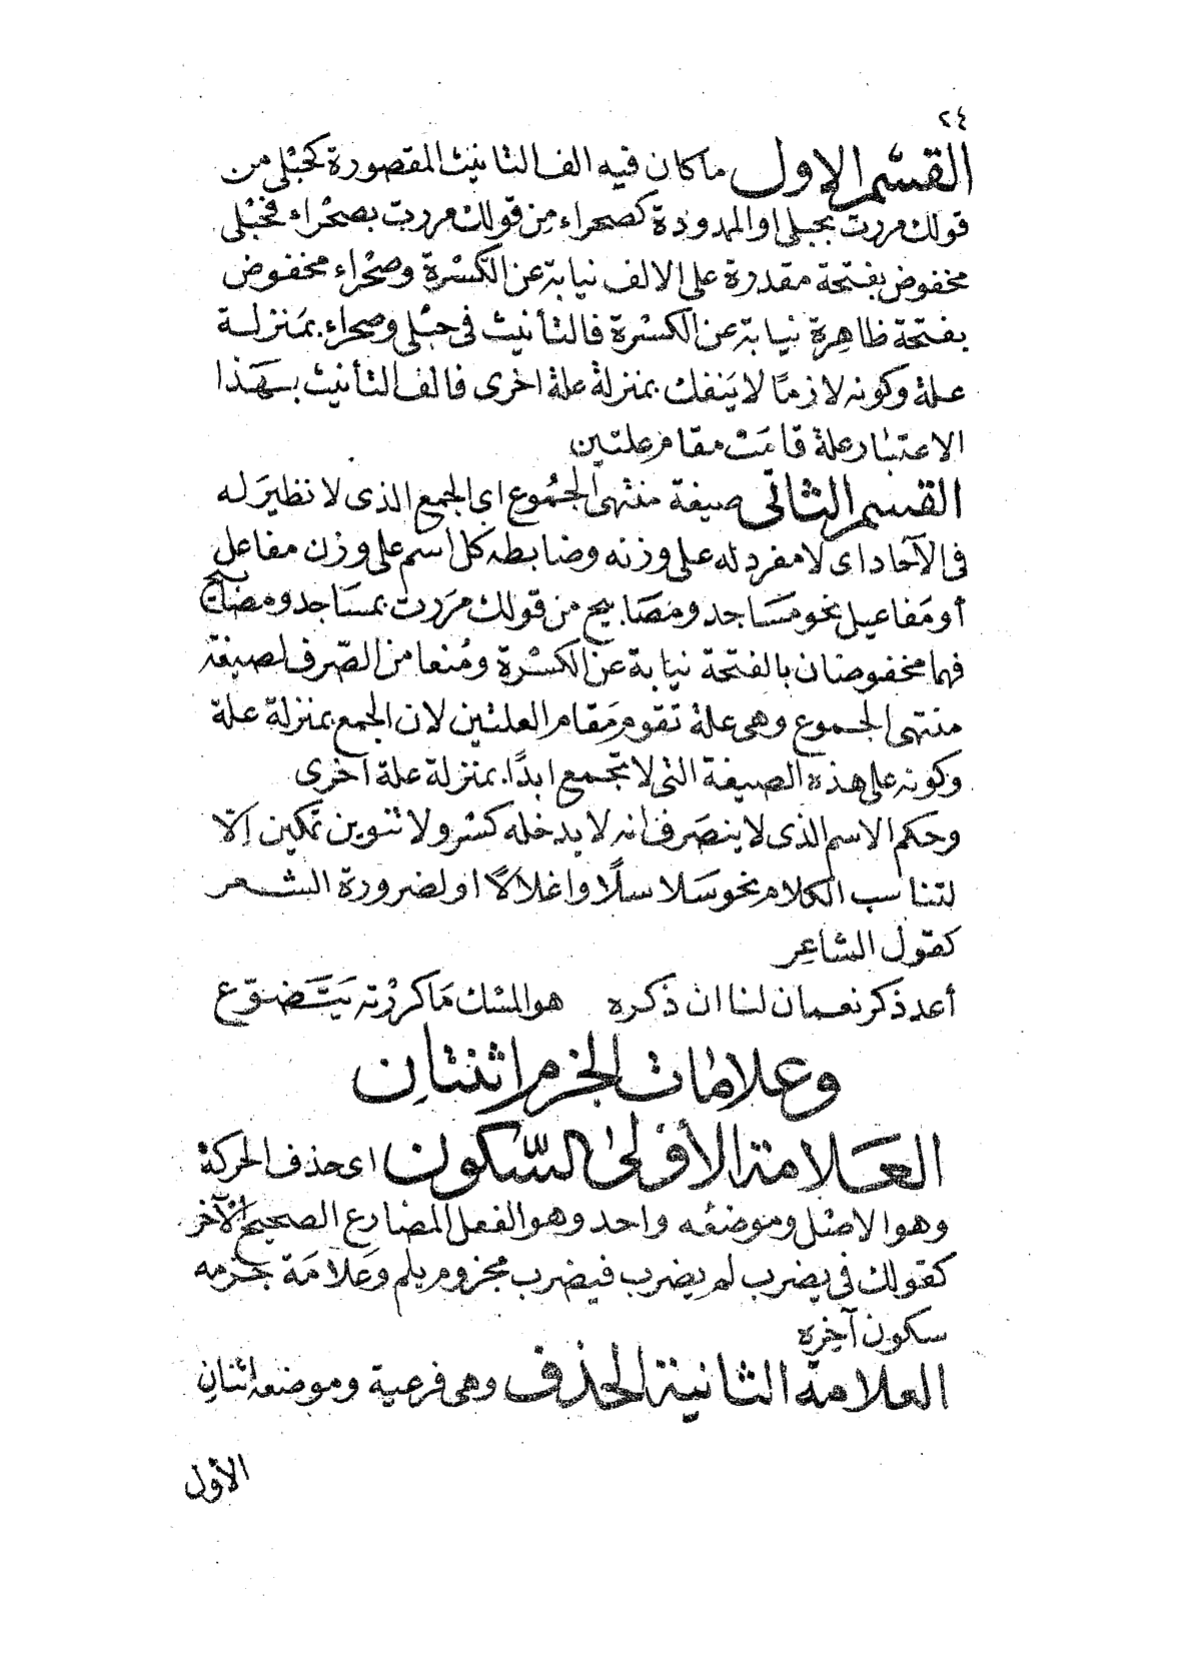 ٢٤
القسم الاول ماكان فيه الف التانيث المقصورة كحبْلى من
قولك مررت بحبلى او الممدودة كصحراء مِن قولك مررت بصحْراء فحُبْلى
مخفوض بفتحة مقدرة على الالف نيابة عن الكسْرة وصحْراء مخفوض
بفتحة ظاهِرة نيابة عن الكسْرة فالتأنيث فى حبْلى وصحراء بمَنزلة
علة وكونه لازمًا لا يَنفك بمنزلة علة اخرى فالف التأنيث بهَذا
الاعتبار علة قامَتْ مقام علتين
القسم الثانى صيغة منتهى الجمُوع اى الجمع الذى لا نظيرَ له
فى الآحاد اى لا مفرد له على وزنه وضابطه كل اسم على وزن مفاعل
أو مَفاعيل نحو مَسَاجد ومَصَابيح من قولك مرَرت بمسَاجد ومصَابيح
فهما مخفوضان بالفتحة نيابة عن الكسْرة ومُنعا من الصّرف لصيغة
منتهى الجموع وهى علة تقوم مَقام العلتين لان الجمع بمنزلة علة
وكونه على هذه الصيغة التى لا تجمع ابدًا بمنزلة علة اخرى
وحكم الاسم الذى لا ينصَرف انه لا يدخله كسْر ولا تنوين تمكين اِلّا
لتناسب الكلام نحو سَلاسلًا واغلالًا او لضرورة الشعر
كقول الشاعِر
أعد ذكر نعمان لنا ان ذكره هو المسْك مَا كررْته يَتَضوّع
وعلامات الجزم اثنتانِ
العَلامة الأولىٰ السّكون اى حذف الحركة
وهو الاصْل وموضعُه واحد وهو الفعل المضارع الصحيح الآخر
كقولك فى يضرب لم يضرب فيضرب مجزوم بلم وعَلامَة جزمه
سكون آخِره
العلامة الثانية الحذف وهى فرعية وموضعه اثنانِ
الأول